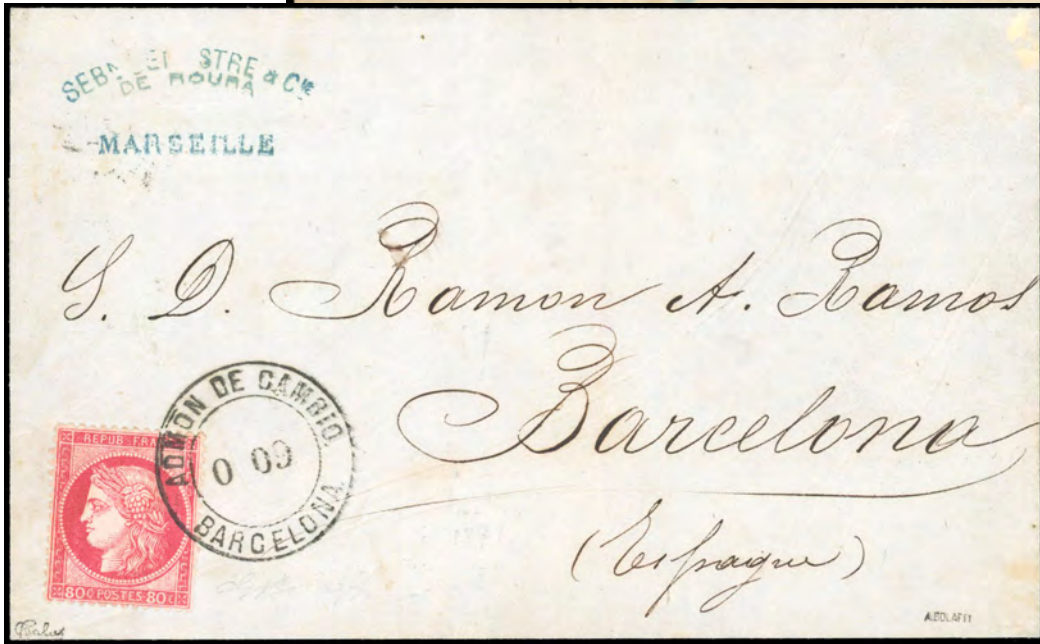 STRE & Cie
DE ROURA
MARSEILLE
S. D. Ramon A. Ramos
Barcelona
(Espagne)
ADMÓN DE CAMBIO
0 09
BARCELONA
REPUB FRAN
80C POSTES 80C
A.BOLAFFI